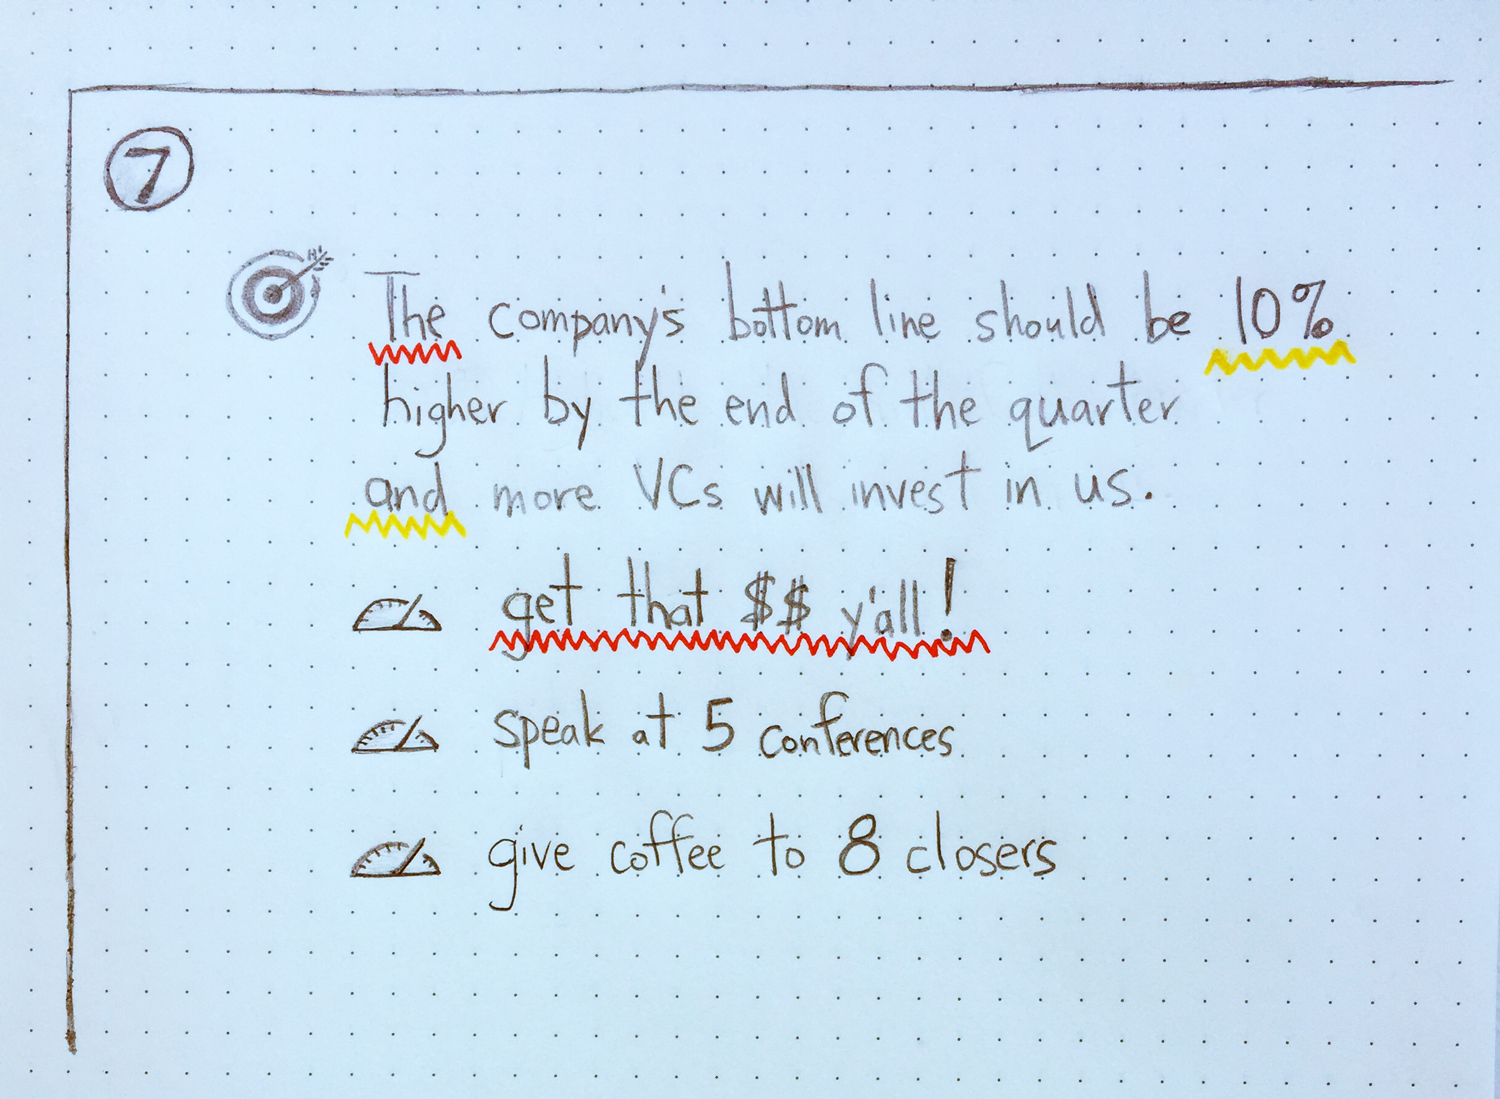 7
The company's bottom line should be 10%
higher by the end of the quarter
and more VCs will invest in us.
get that $$ y'all!
speak at 5 conferences
give coffee to 8 closers